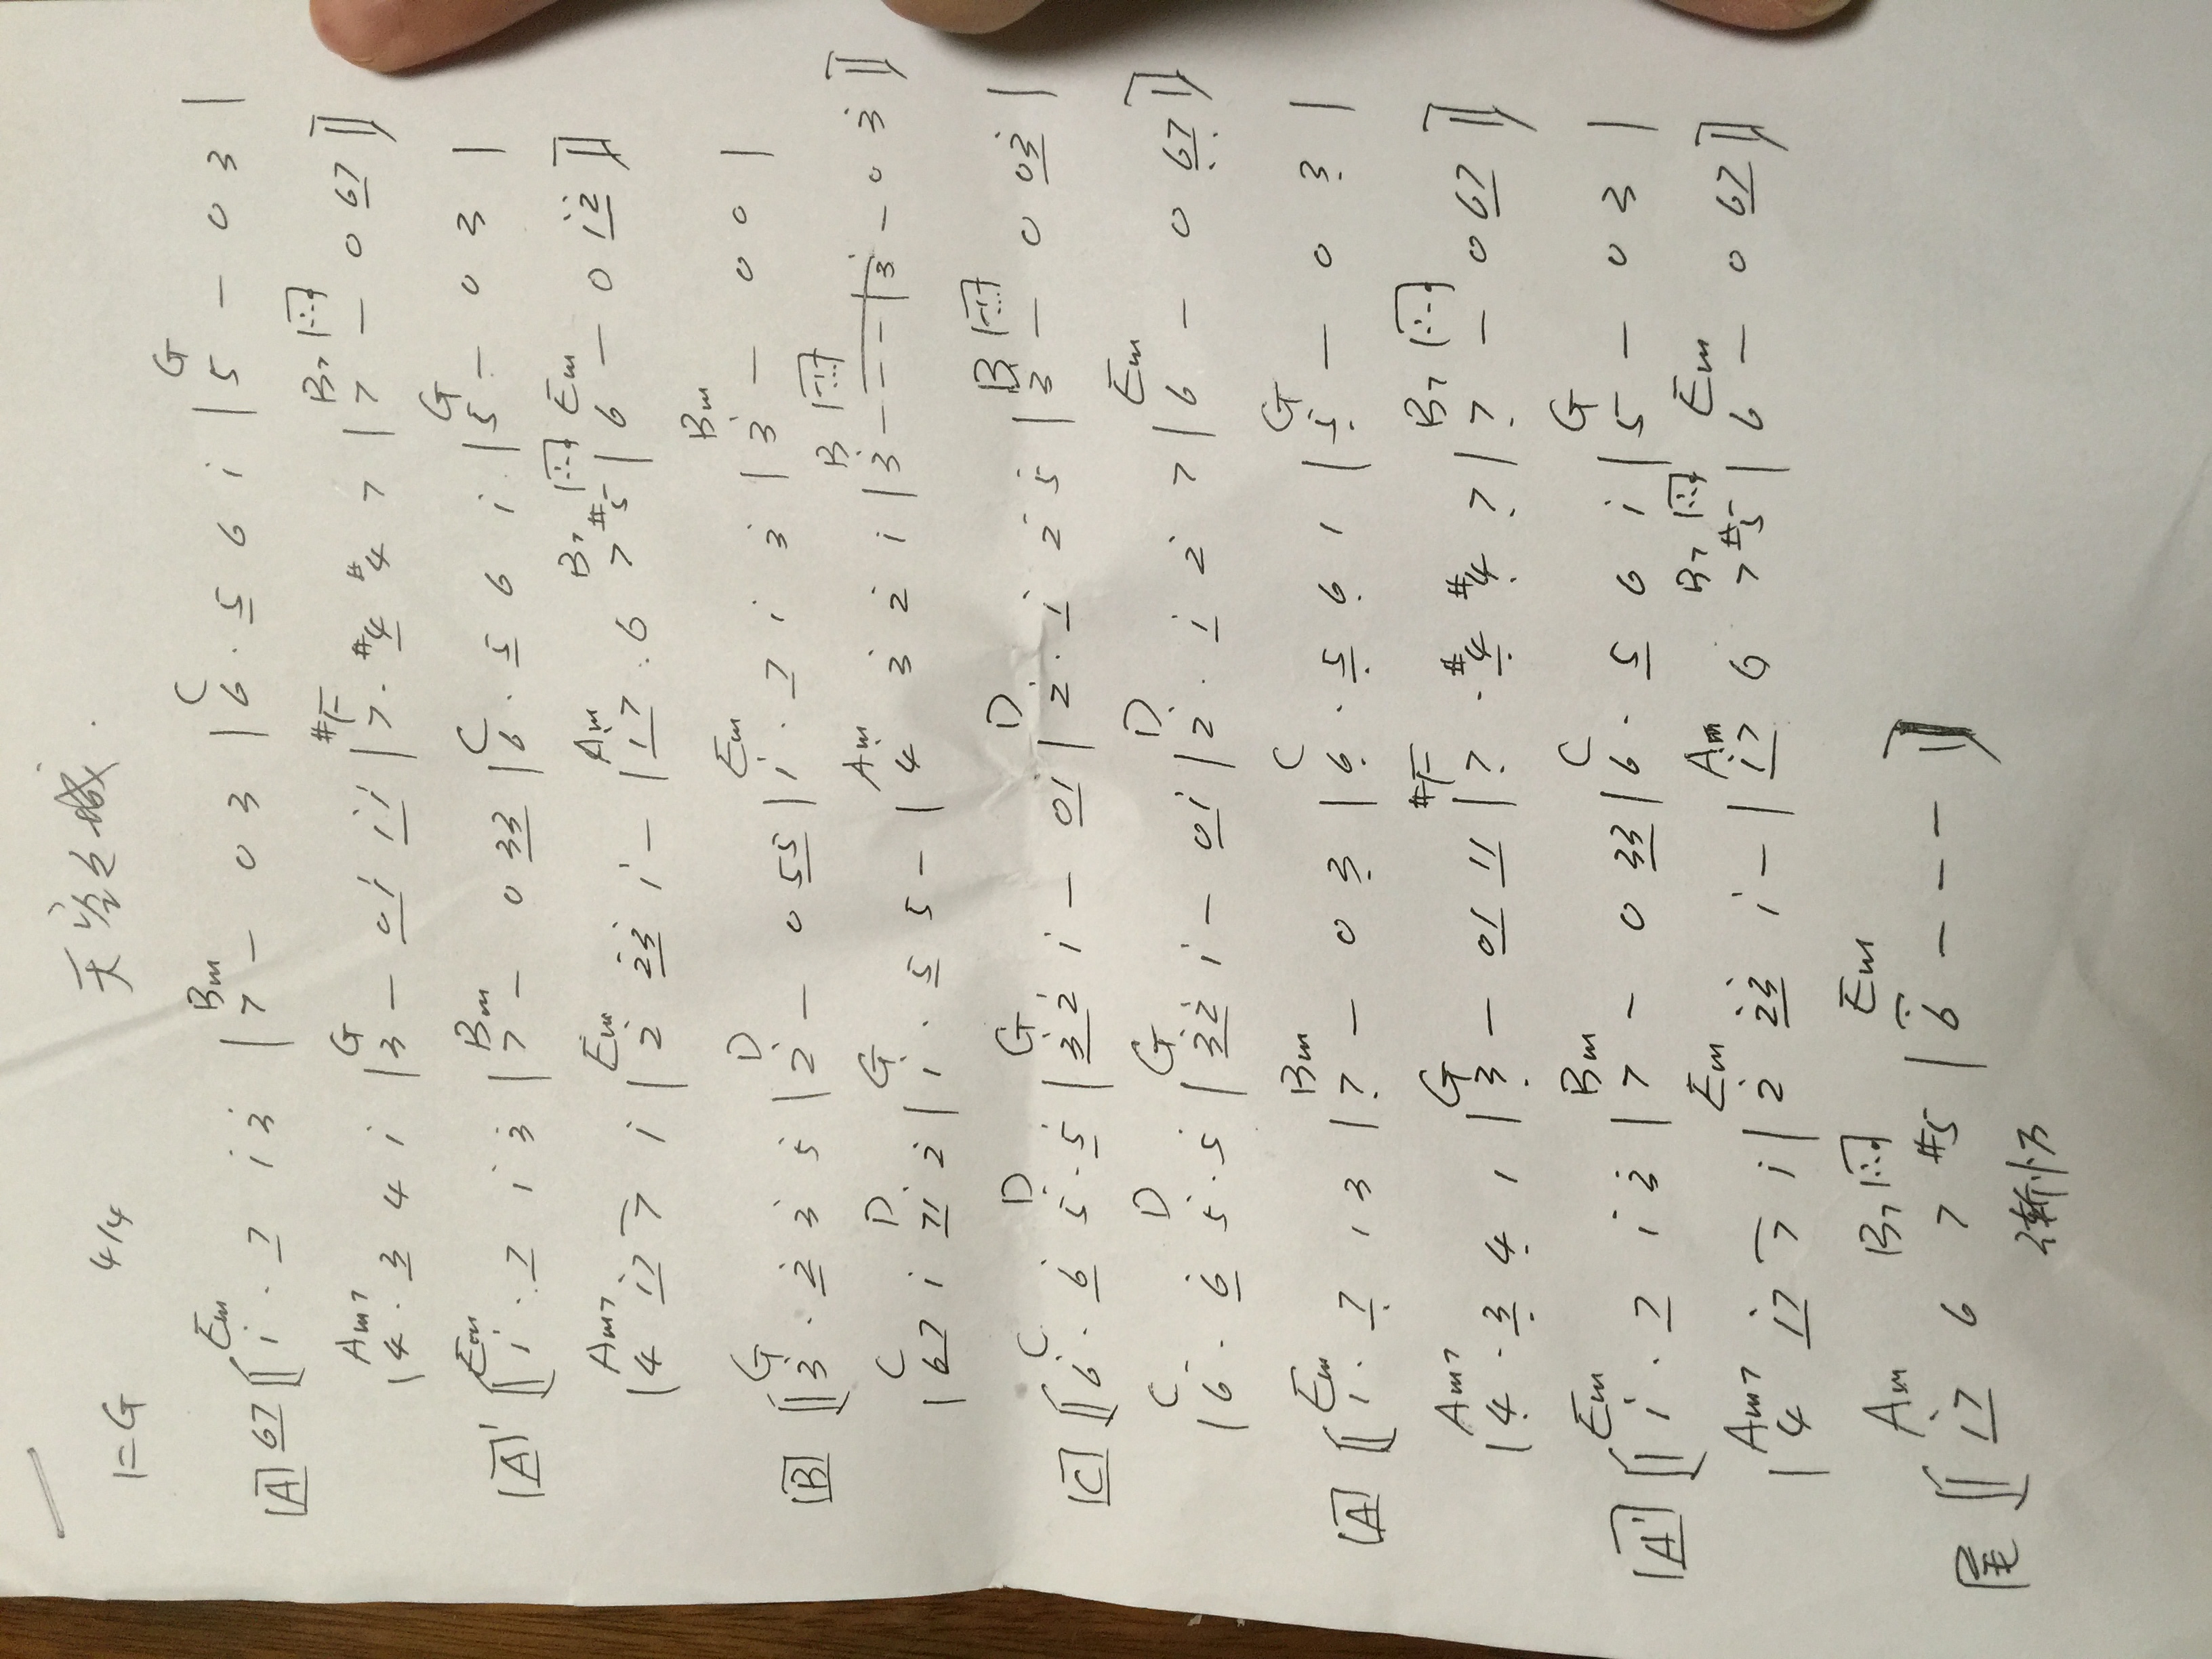 天空之城.
1=G 4/4
Em Bm C G
[A] 67 [ i · 7 i 3̇ | 7 – 0 3 | 6 · 5 6 i | 5 – 0 3 |
Am7 G #F B7
| 4 · 3 4 i | 3 – 0i ii | 7 · #4 #4 7 | 7 – 0 67 ]
Em Bm C G
[A]' [ i · 7 i 3̇ | 7 – 0 33 | 6 · 5 6 i | 5 – 0 3 |
Am7 Em Am B7 Em
| 4 i7 7 i | 2̇ 2̇3̇ i – | i7 6 7 #5 | 6 – 0 i2̇ ]
G D Em Bm
[B] [ 3̇ · 2̇ 3̇ 5̇ | 2̇ – 0 55 | i · 7 i 3̇ | 3̇ – 0 0 |
C D G Am B
| 67 i 7i 2̇ | i · 5 5 – | 4̇ 3̇ 2̇ i | 3̇ – – – | 3̇ – 0 3̇ ]
C D G D B
[C] [ 6̇ · 6̇ 5̇ · 5̇ | 3̇2̇ i – 0i | 2̇ · i 2̇ 5̇ | 3̇ – 0 03̇ |
C D G D Em
| 6̇ · 6̇ 5̇ · 5̇ | 3̇2̇ i – 0i | 2̇ · i 2̇ 7 | 6 – 0 6̣7̣ ]
Em Bm C G
[A] [ 1 · 7̣ 1 3 | 7̣ – 0 3̣ | 6̣ · 5̣ 6̣ 1 | 5̣ – 0 3̣ |
Am7 G #F B7
| 4̣ · 3̣ 4̣ 1 | 3̣ – 01 11 | 7̣ · #4̣ #4̣ 7̣ | 7̣ – 0 67 ]
Em Bm C G
[A'] [ i · 7 i 3̇ | 7 – 0 33 | 6 · 5 6 i | 5 – 0 3 |
Am7 Em Am B7 Em
| 4 i7 7 i | 2̇ 2̇3̇ i – | i7 6 7 #5 | 6 – 0 67 ]
Am B7 Em
尾 [ i7 6 7 #5 | 6 – – – ]
渐慢